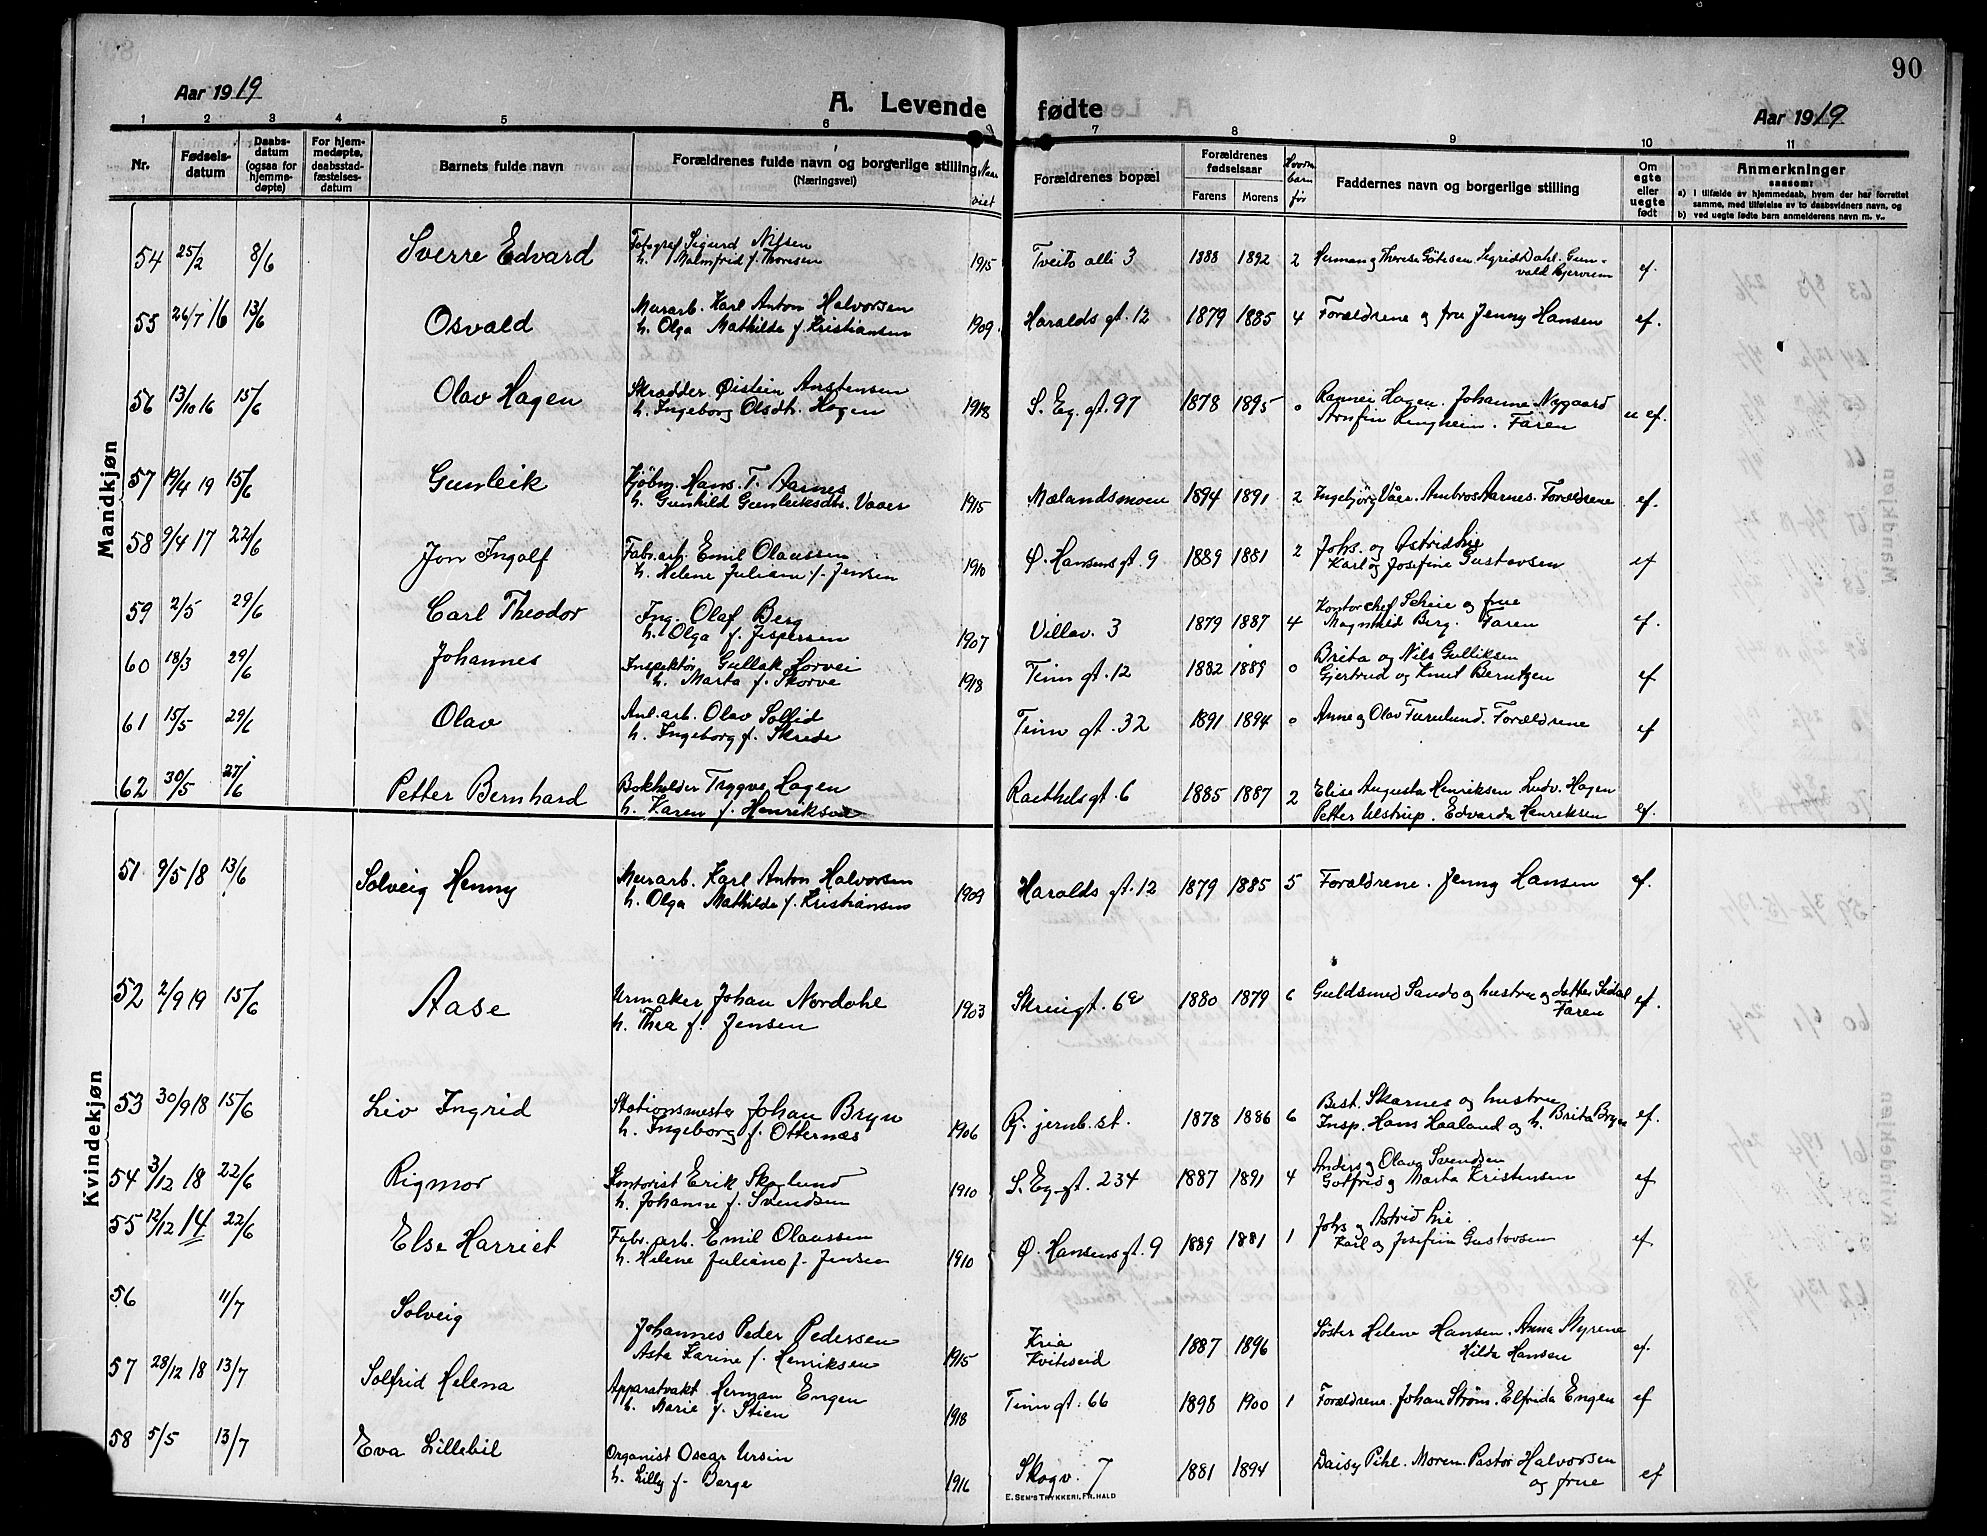 90
Aar 1919
A. Levende fødte
Aar 1919
1 2 3 4 5 6 7 8 9 10 11
Nr.
Fødsels-
datum
Daabs-
datum
(ogsaa for
hjemme-
døpte)
For hjem-
medøpte,
daabsstad-
fæstelses-
datum
Barnets fulde navn
Forældrenes fulde navn og borgerlige stilling
(Næringsvei)
Naar
viet
Forældrenes bopæl
Forældrenes
fødselsaar
Farens Morens
barn
før
Faddernes navn og borgerlige stilling
Om
egte
eller
uegte
født
Anmerkninger
saasom:
a) I tilfælde av hjemmedaab, hvem der har forrettet
samme, med tilføielse av to daabsvidners navn, og
b) ved uegte fødte barn anmelderens navn m. v.
Mandkjøn
54 25/2 8/6 Sverre Edvard Fotograf Sigurd Nilsen
h. Malmfrid f. Thoresen 1915 Tveito alli 3 1888 1892 2 Herman og Therese Sigrid Dahl. Gun-
vald ef.
55 26/7 16 13/6 Osvald Murarb. Karl Anton Halvorsen
h. Olga Mathilde f. Kristiansen 1909 Haralds gt. 12 1879 1885 4 Forældrene og fru Jenny Hansen ef.
56 13/10 16 15/6 Olav Hagen Skrædder Øistein Anstensen
h. Ingeborg Olsdtr. Hagen 1918 S. Eg. gt. 97 1878 1895 0 Rannei Hagen. Johanne Nygaard
Arnfin Ringheim. Faren u ef.
57 19/4 19 15/6 Gunleik Kjøbm. Hans. T. Aarnes
h. Gunhild Gunleiksdtr. Vaaer 1915 Mælandsmoen 1894 1891 2 Ingebjörg Våer. Ambros Aarnes. Forældrene ef.
58 9/4 17 22/6 Jon Ingolf Fabr. arb. Emil Olaussen
h. Helene Juliane f. Jensen 1910 Ø. Hansens gt. 9 1889 1881 2 Johs. og Astrid Lie
Karl og Josefine Gustavsen ef
59 2/5 29/6 Carl Theodor Ing. Olaf Berg
h. Olga f. Jespersen 1907 Villav. 3 1879 1887 4 Kontorchef Scheie og frue
Magnhild Berg. Faren ef.
60 18/3 29/6 Johannes Inspektør Gullak Horvei
h. Marta f. Skorve 1918 Tinn gt. 12 1882 1889 0 Brita og Nils Gulliksen
Gjertrud og Knut Berntzen ef
61 15/5 29/6 Olav Anl. arb. Olav Sollid
h. Ingeborg f. Skrede Tinn gt. 32 1891 1894 0 Anne og Olav Furulund. Forældrene ef
62 30/5 27/6 Petter Bernhard Bokholder Trygve Hagen
h. Karen f. Henriksen Raethels gt. 6 1885 1887 2 Elise Augusta Henriksen Ludv. Hagen
Petter Ulstrup. Edvarda Henriksen ef.
Kvindekjøn
51 9/5 18 13/6 Solveig Henny Murarb. Karl Anton Halvorsen
h. Olga Mathilde f. Kristiansen 1909 Haralds gt. 12 1879 1885 5 Forældrene. Jenny Hansen ef.
52 2/9 19 15/6 Aase Urmaker Johan Nordahl
h. Thea f. Jensen 1903 Skriugt. 6 1880 1879 6 Guldsmed Sando og hustru og datter
Faren ef.
53 30/9 18 15/6 Liv Ingrid Stationsmester Johan Bryn
h. Ingeborg f. Otternæs 1906 Rj. jernb. st. 1878 1886 6 Best. Skarnes og hustru
Insp. Hans Haaland og h. Brita Bryn ef.
54 3/12 18 22/6 Rigmor Kontorist Erik Skoglund
h. Johanne f. Svendsen 1910 S. Eg. gt. 234 1887 1891 4 Anders og Olava Svendsen
Gotfrid og Marta Kristensen ef
55 12/12 14 22/6 Else Harriet Fabr. arb. Emil Olaussen
h. Helene Juliane f. Jensen 1910 Ø. Hansens gt. 9 1889 1881 1 Johs og Astrid Lie.
Karl og Josefine Gustavsen ef.
56 11/7 Solveig Johannes Peder Pedersen
Asta Karine f. Henriksen 1915 Kria
Kviteseid 1887 1896 Søster Helene Hansen. Anna Myrene
Hilda Hansen ef.
57 28/12 18 13/7 Solfrid Helena Apparatvakt Herman Engen
h. Marie f. Stien 1918 Tinn gt. 66 1898 1900 1 Forældrene. Johan Strøm. Elfrida Engen ef
58 5/5 13/7 Eva Lillebil Organist Oscar Ursin
h. Lilly f. Berge 1916 Skogv. 7 1881 1894 Daisy Pihl. Moren. Pastor Halvorsen
og frue ef
E. SEM'S TRYKKERI, FR.HALD